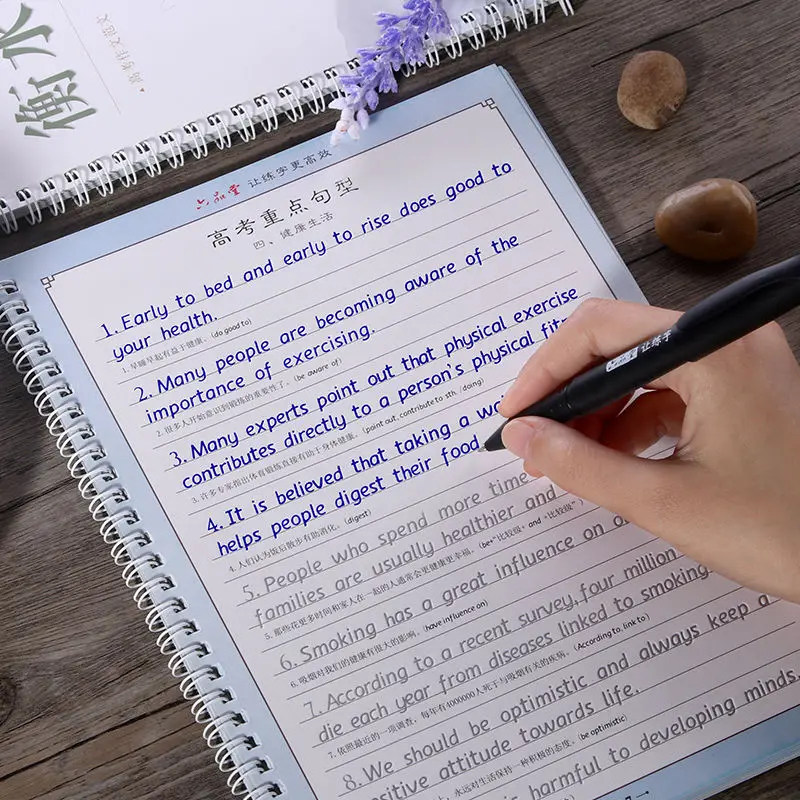 衡水
六品堂 让练字更高效
高考重点句型
四、健康生活
1. Early to bed and early to rise does good to
your health.
1. 早睡早起有益于健康。(do good to)
2. Many people are becoming aware of the
importance of exercising.
2. 很多人开始意识到锻炼的重要性了。(be aware of)
3. Many experts point out that physical exercise
contributes directly to a person's physical
3. 许多专家指出体育锻炼直接有助于身体健康。(point out, contribute to sth. /doing)
4. It is believed that taking a
helps people digest their food
4. 人们认为饭后散步有助消化。(digest)
5. People who spend more time
families are usually healthier and
5. 那些花更多时间和家人在一起的人通常会更健康更幸福。(be+"比较级" and "比较级")
6. Smoking has a great influence on
6. 吸烟对我们的健康有很大的影响。(have influence on)
7. According to a recent survey, four million
die each year from diseases linked to smoking.
7. 依照最近的一项调查，每年有4000000人死于与吸烟有关的疾病。(According to, link to)
8. We should be optimistic and always keep a
attitude towards life.
永远对生活保持一种积极的态度。(be optimistic)
is harmful to developing minds.
让练字